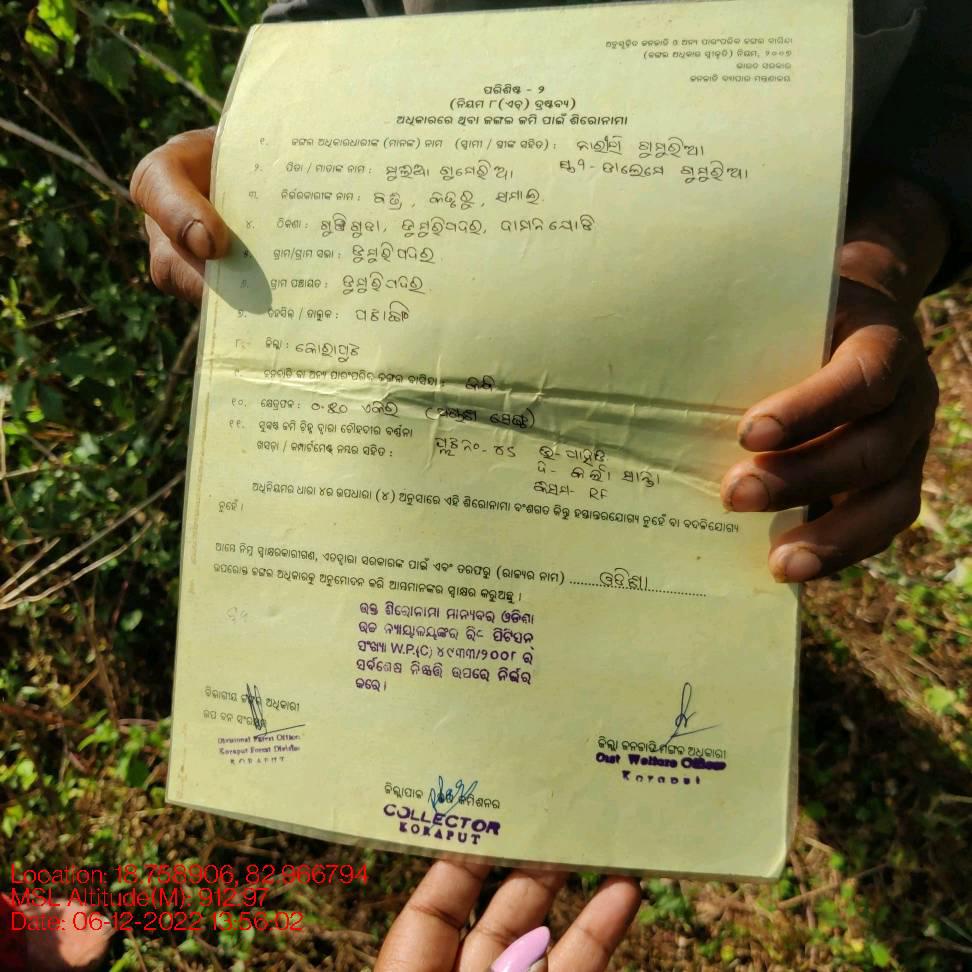 ଅନୁସୂଚିତ ଜନଜାତି ଓ ଅନ୍ୟ ପାରଂପରିକ ଜଙ୍ଗଲ ବାସିନ୍ଦା
(ଜଙ୍ଗଲ ଅଧିକାର ସ୍ୱୀକୃତି) ନିୟମ, ୨୦୦୭
ଭାରତ ସରକାର
ଜନଜାତି ବ୍ୟାପାର ମନ୍ତ୍ରଣାଳୟ
ପରିଶିଷ୍ଟ - ୨
(ନିୟମ ୮(ଏଚ୍) ଦ୍ରଷ୍ଟବ୍ୟ)
ଅଧିକାରରେ ଥିବା ଜଙ୍ଗଲ ଜମି ପାଇଁ ଶିରୋନାମା
୧. ଜଙ୍ଗଲ ଅଧିକାରଧାରୀଙ୍କ (ମାନଙ୍କ) ନାମ (ସ୍ୱାମୀ / ସ୍ତ୍ରୀଙ୍କ ସହିତ) : ଗୁମୁରିଆ
୨. ପିତା / ମାତାଙ୍କ ନାମ : ଗୁମେରିଆ ସ୍ତ୍ରୀ - ଡାଲେସେ ଗୁମୁରିଆ
୩. ନିର୍ଭରକାରୀଙ୍କ ନାମ :
୪. ଠିକଣା : ଗୁଞ୍ଜିଗୁଡା, ଡୁମୁରିପଦର, ଦାମନଯୋଡି
୫. ଗ୍ରାମ/ଗ୍ରାମ ସଭା : ଡୁମୁରିପଦର
୬. ଗ୍ରାମ ପଞ୍ଚାୟତ : ଡୁମୁରିପଦର
୭. ତହସିଲ / ତାଲୁକ : ପଟାଙ୍ଗୀ
୮. ଜିଲ୍ଲା : କୋରାପୁଟ
୯. ଜନଜାତି ବା ଅନ୍ୟ ପାରଂପରିକ ଜଙ୍ଗଲ ବାସିନ୍ଦା :
୧୦. କ୍ଷେତ୍ରଫଳ : ୦.୫୦ ଏକର
୧୧. ସୁସ୍ପଷ୍ଟ ଜମି ଚିହ୍ନ ଦ୍ୱାରା ଚୌହଦୀର ବର୍ଣ୍ଣନା
ଖସଡ଼ା / କମ୍ପାର୍ଟମେଣ୍ଟ ନମ୍ବର ସହିତ : ପ୍ଲଟ ନଂ - ୪୫ ଉ - ପାହାଡ
ଦ - ସାନ୍ତା
କିସମ - RF
ଅଧିନିୟମର ଧାରା ୪ର ଉପଧାରା (୪) ଅନୁସାରେ ଏହି ଶିରୋନାମା ବଂଶଗତ କିନ୍ତୁ ହସ୍ତାନ୍ତରଯୋଗ୍ୟ ନୁହେଁ ବା ବଦଳିଯୋଗ୍ୟ
ନୁହେଁ ।
ଆମ୍ଭେ ନିମ୍ନ ସ୍ୱାକ୍ଷରକାରୀଗଣ, ଏତଦ୍ୱାରା ସରକାରଙ୍କ ପାଇଁ ଏବଂ ତରଫରୁ (ରାଜ୍ୟର ନାମ) ......ଓଡିଶା......
ଉପରୋକ୍ତ ଜଙ୍ଗଲ ଅଧିକାରକୁ ଅନୁମୋଦନ କରି ଆମ୍ଭମାନଙ୍କର ସ୍ୱାକ୍ଷର କରୁଅଛୁ ।
ଉକ୍ତ ଶିରୋନାମା ମାନ୍ୟବର ଓଡିଶା
ଉଚ୍ଚ ନ୍ୟାୟାଳୟଙ୍କର ରିଟ ପିଟିସନ
ସଂଖ୍ୟା W.P.(C) ୪୯୩୩/୨୦୦୮ ର
ସର୍ବଶେଷ ନିଷ୍ପତ୍ତି ଉପରେ ନିର୍ଭର
କରେ ।
ବିଭାଗୀୟ ଜଙ୍ଗଲ ଅଧିକାରୀ
ଉପ ବନ ସଂରକ୍ଷକ
Divisional Forest Officer
Koraput Forest Division
KORAPUT
ଜିଲ୍ଲା ଜନଜାତି ମଙ୍ଗଳ ଅଧିକାରୀ
Dist Welfare Officer
Koraput
ଜିଲ୍ଲାପାଳ କମିଶନର
COLLECTOR
KORAPUT
Location: 18.758906, 82.966794
MSL Altitude(M): 912.97
Date: 06-12-2022 13:56:02